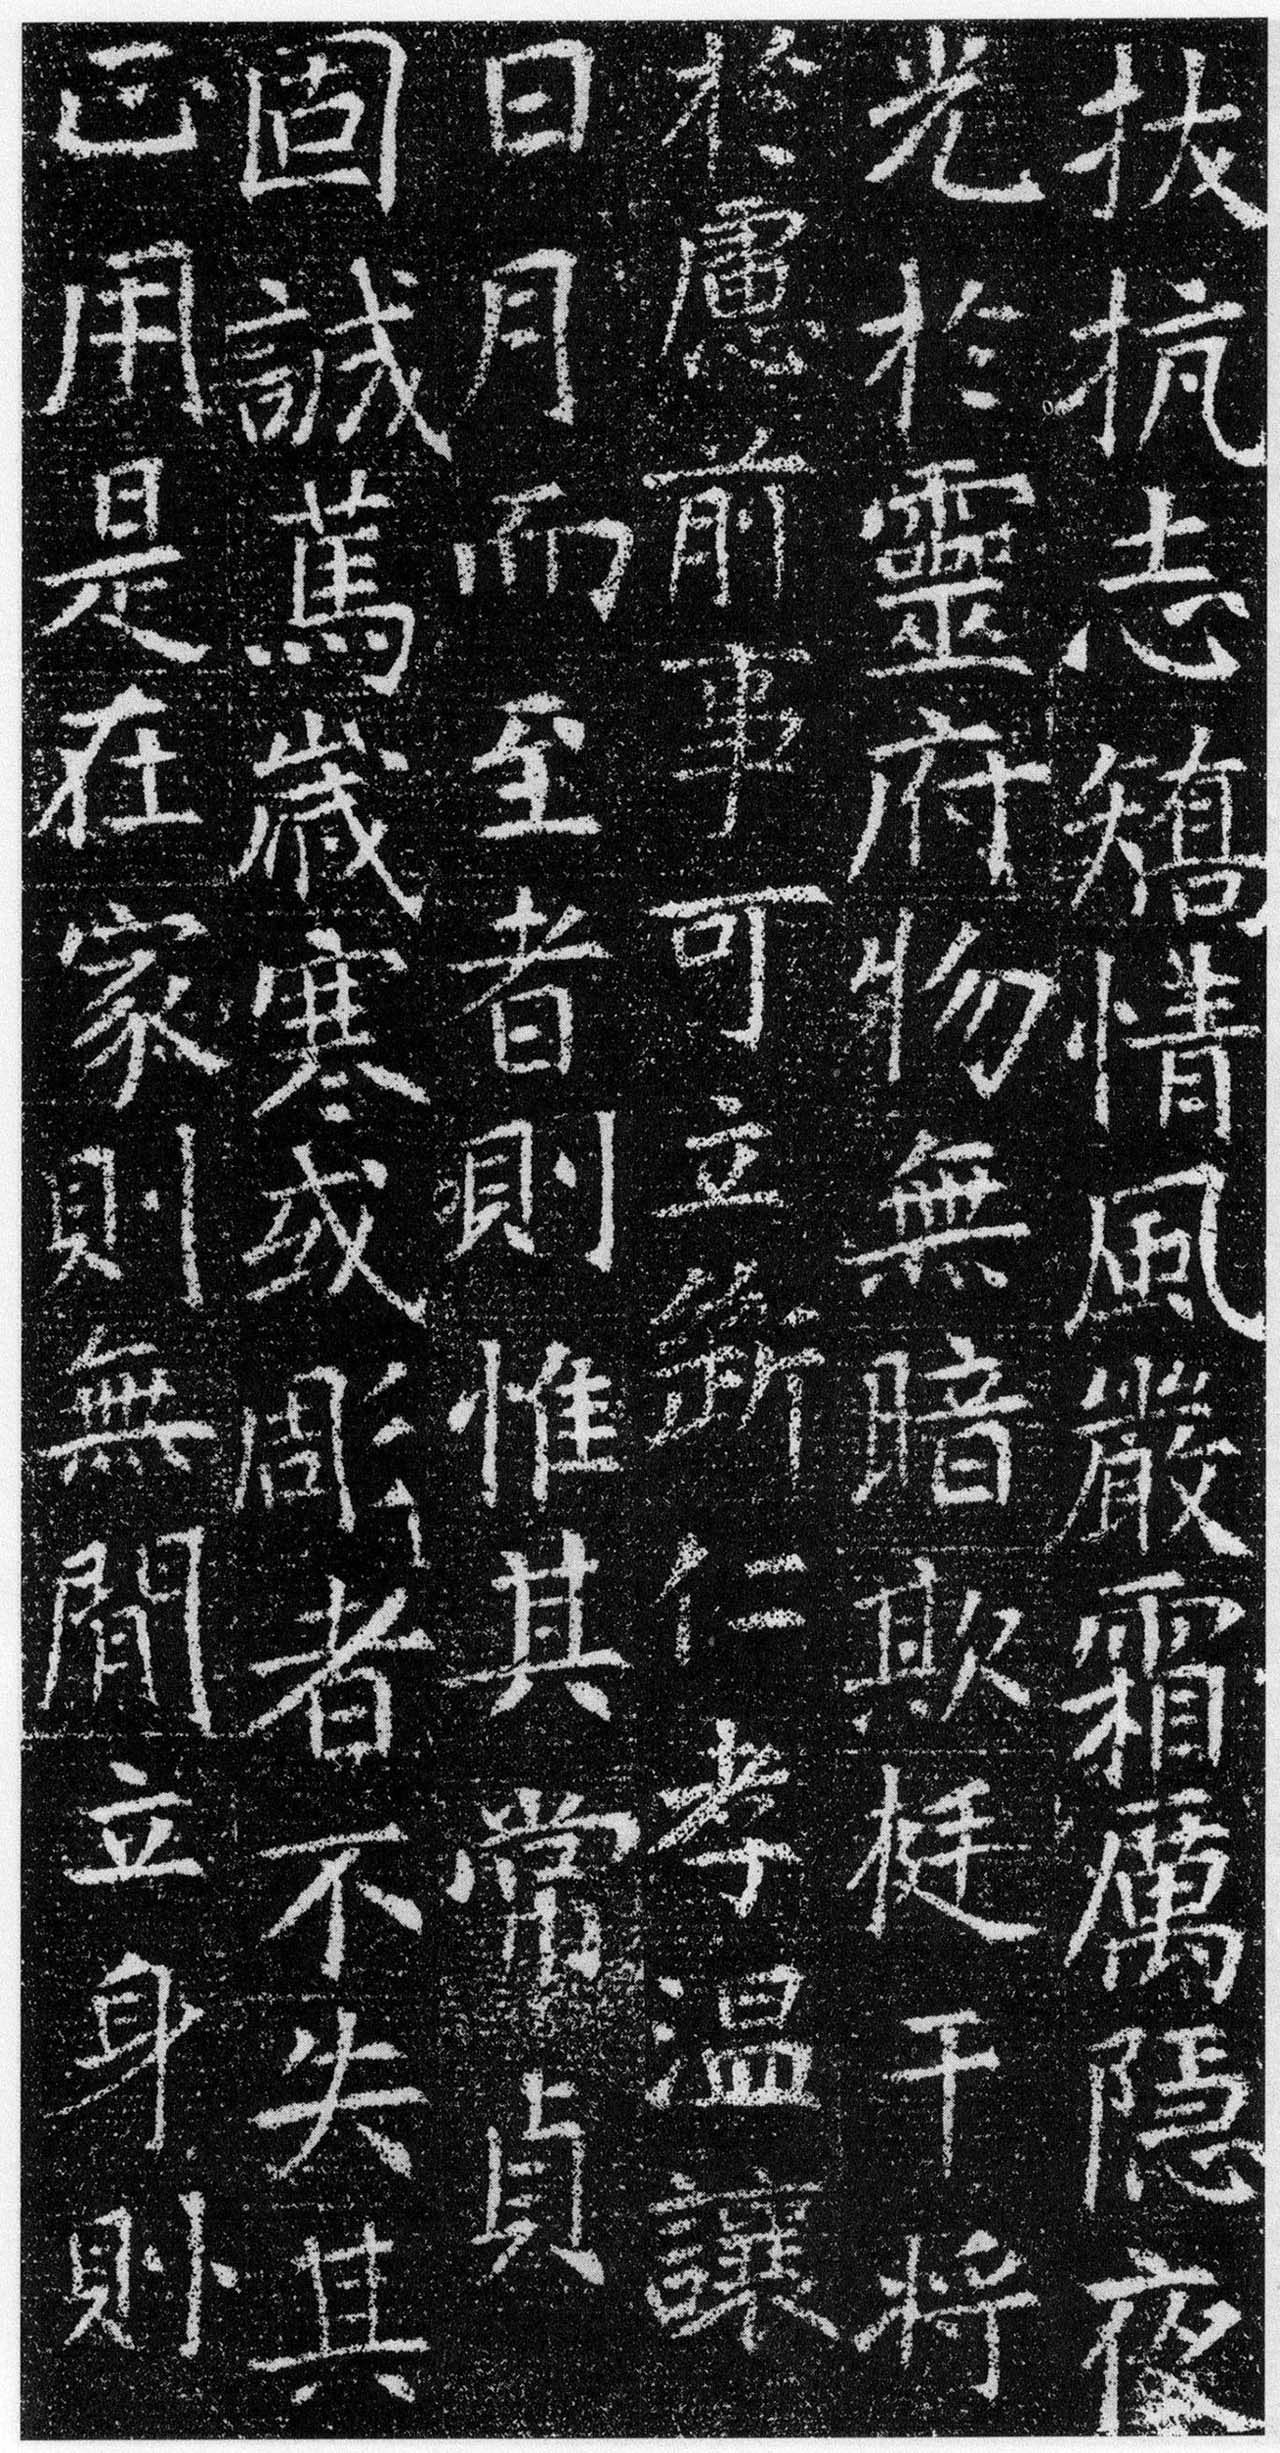 拔抗志矯情風嚴霜厲隱夜
光於靈府物無暗欺挺干將
於慮前事可立斷仁孝温讓
日月而至者則惟其常貞
固誠蔿歲寒或彫者不失其
正用是在家則無閒立身則